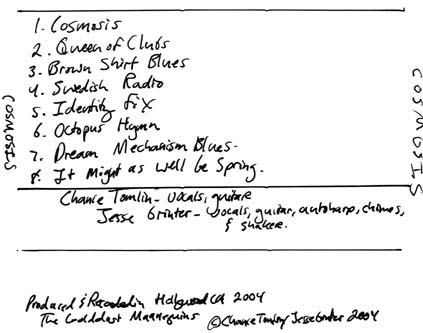 1. Cosmosis
2. Queen of Clubs
3. Brown Shirt Blues
4. Swedish Radio
5. Identity Fix
6. Octopus Hymn
7. Dream Mechanism Blues.
8. It Might as well be Spring.
COSMOSIS
COSMOSIS
Chance Tomlin - vocals, guitar
Jesse Grinter - vocals, guitar, autoharp, chimes,
& shaker.
Produced & Recorded in Hollywood CA 2004
The Mannequins © Chance Tomlin/Jesse Grinter 2004